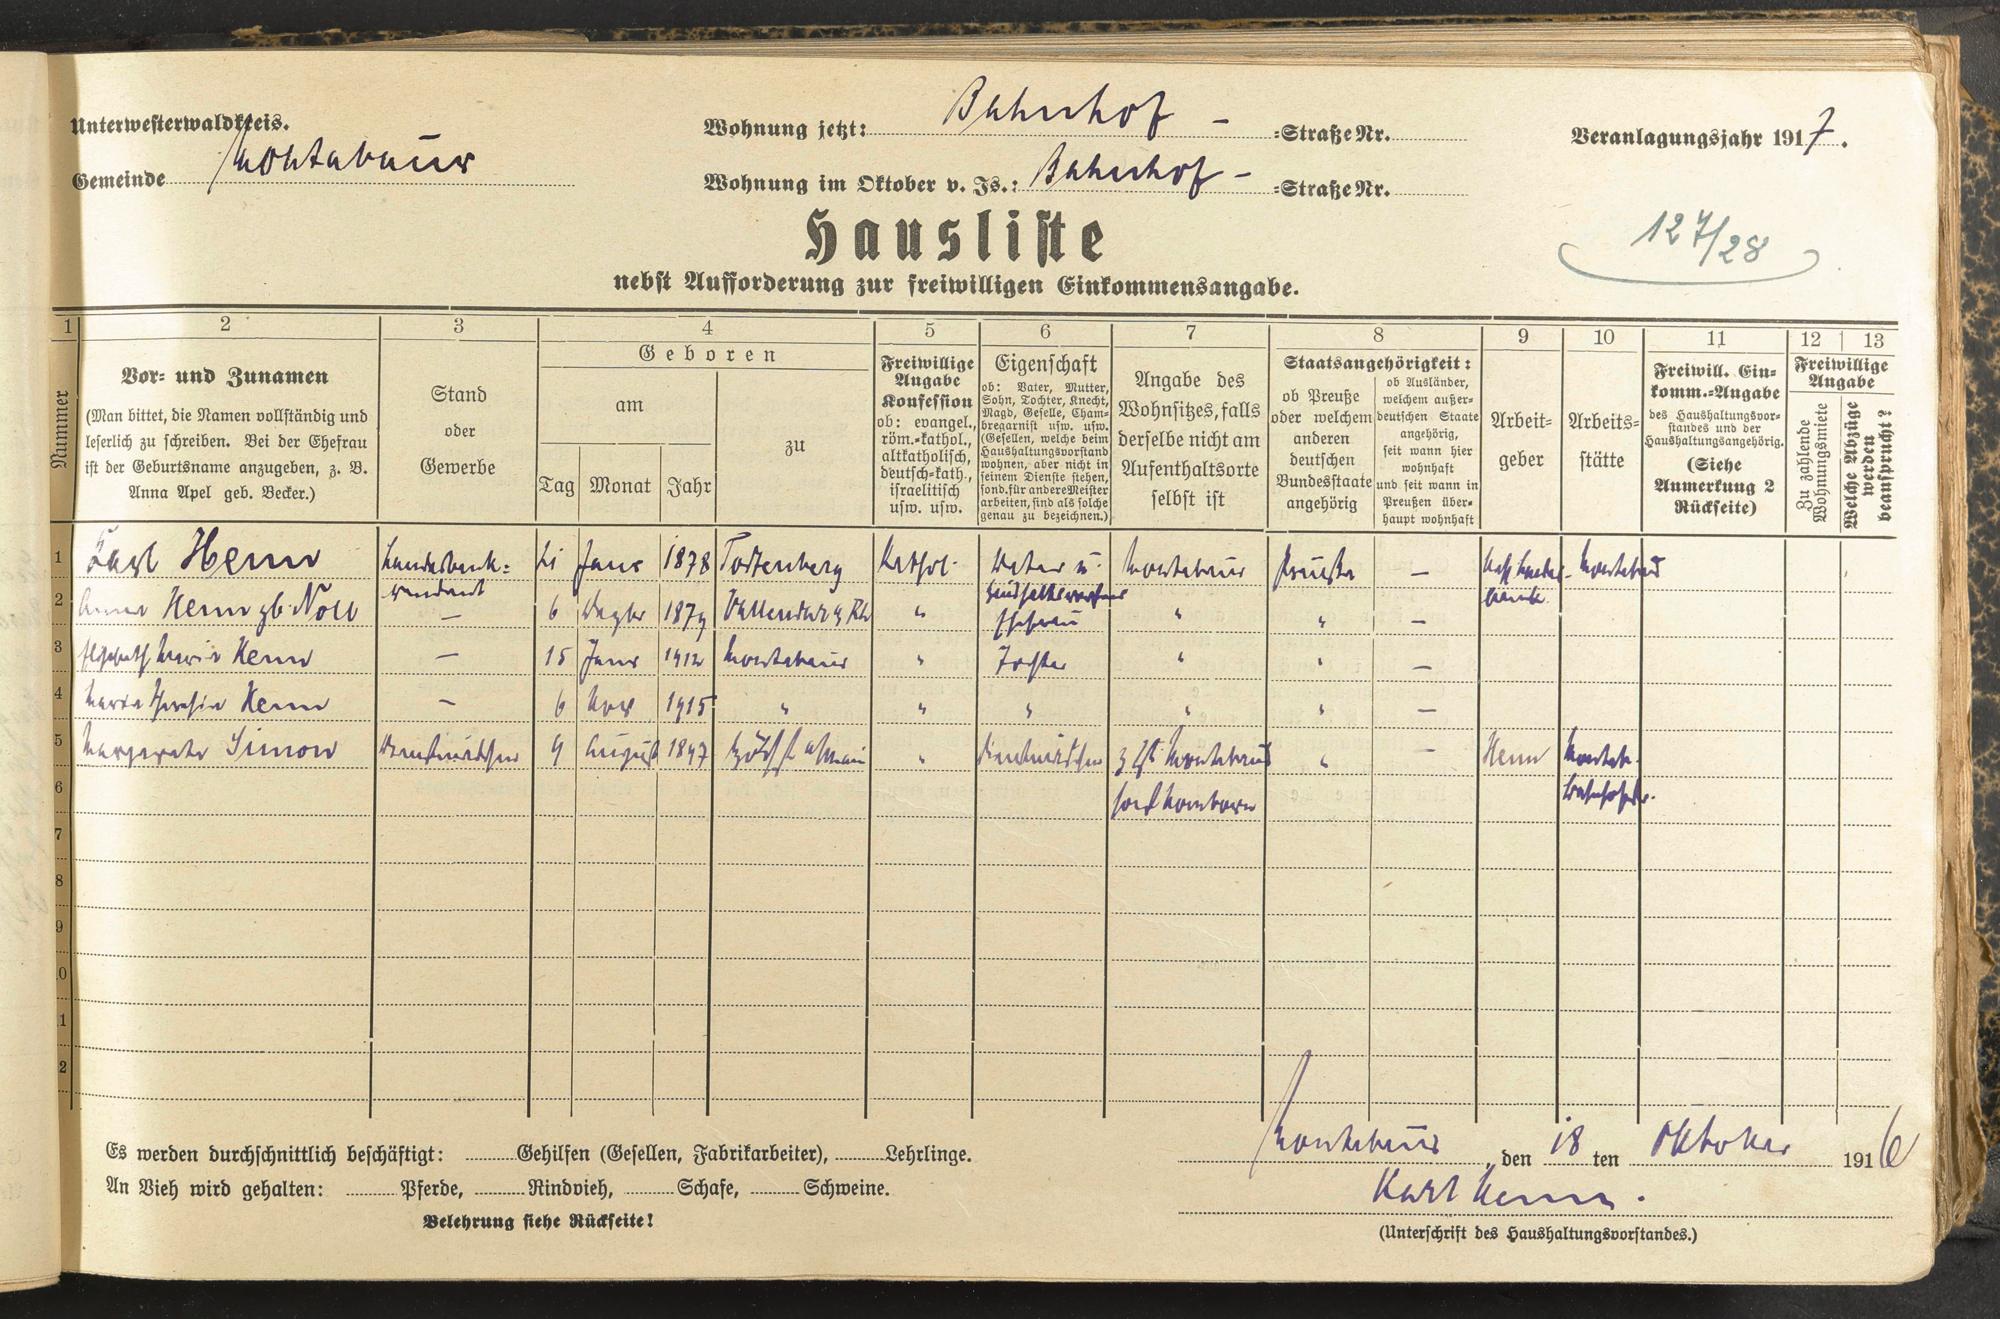 Unterwesterwaldkreis.
Gemeinde Montabaur
Wohnung jetzt: Bahnhof - =Straße Nr.
Wohnung im Oktober v. Js.: Bahnhof - =Straße Nr.
Veranlagungsjahr 1917.
127/28
Hausliste
nebst Aufforderung zur freiwilligen Einkommensangabe.
1 2 3 4 5 6 7 8 9 10 11 12 13
Nummer
Vor- und Zunamen
(Man bittet, die Namen vollständig und
leserlich zu schreiben. Bei der Ehefrau
ist der Geburtsname anzugeben, z. B.
Anna Apel geb. Becker.)
Stand
oder
Gewerbe
Geboren
am
Tag Monat Jahr
zu
Freiwillige
Angabe
Konfession
ob: evangel.,
röm.-kathol.,
altkatholisch,
deutsch-kath.,
israelitisch
usw. usw.
Eigenschaft
ob: Vater, Mutter,
Sohn, Tochter, Knecht,
Magd, Geselle, Cham-
bregarnist usw. usw.
(Gesellen, welche beim
Haushaltungsvorstand
wohnen, aber nicht in
seinem Dienste stehen,
sond. für andere Meister
arbeiten, sind als solche
genau zu bezeichnen.)
Angabe des
Wohnsitzes, falls
derselbe nicht am
Aufenthaltsorte
selbst ist
Staatsangehörigkeit:
ob Preuße
oder welchem
anderen
deutschen
Bundesstaate
angehörig
ob Ausländer,
welchem außer-
deutschen Staate
angehörig,
seit wann hier
wohnhaft
und seit wann in
Preußen über-
haupt wohnhaft
Arbeit-
geber
Arbeits-
stätte
Freiwill. Ein-
komm.-Angabe
des Haushaltungsvor-
standes und der
Haushaltungsangehörig.
(Siehe
Anmerkung 2
Rückseite)
Freiwillige
Angabe
Zu zahlende
Wohnungsmiete
Welche Abzüge
werden
beansprucht?
1 Karl Henn Landesbank= 21 Janr 1878 Kathol. Vater u. Montabaur Preuße — Montabaur
rendant Haushaltsvorstand bank
2 Anna Henn gb. Noll — 6 Dezbr " Ehefrau " " —
3 Elisabeth Maria Henn — 15 Janr 1912 Montabaur " Tochter " " —
4 Maria Theresia Henn — 6 Nov 1915 " " " " " —
5 Margarete Simon Dienstmädchen 9 August 1897 Höchst a Main " Dienstmädchen z Zt. Montabaur " — Henn Montab.
6 sonst Bahnhofstr.
7
8
9
10
11
12
Es werden durchschnittlich beschäftigt: Gehilfen (Gesellen, Fabrikarbeiter), Lehrlinge.
An Vieh wird gehalten: Pferde, Rindvieh, Schafe, Schweine.
Belehrung siehe Rückseite!
Montabaur, den 18 ten Oktober 1916
Karl Henn.
(Unterschrift des Haushaltungsvorstandes.)